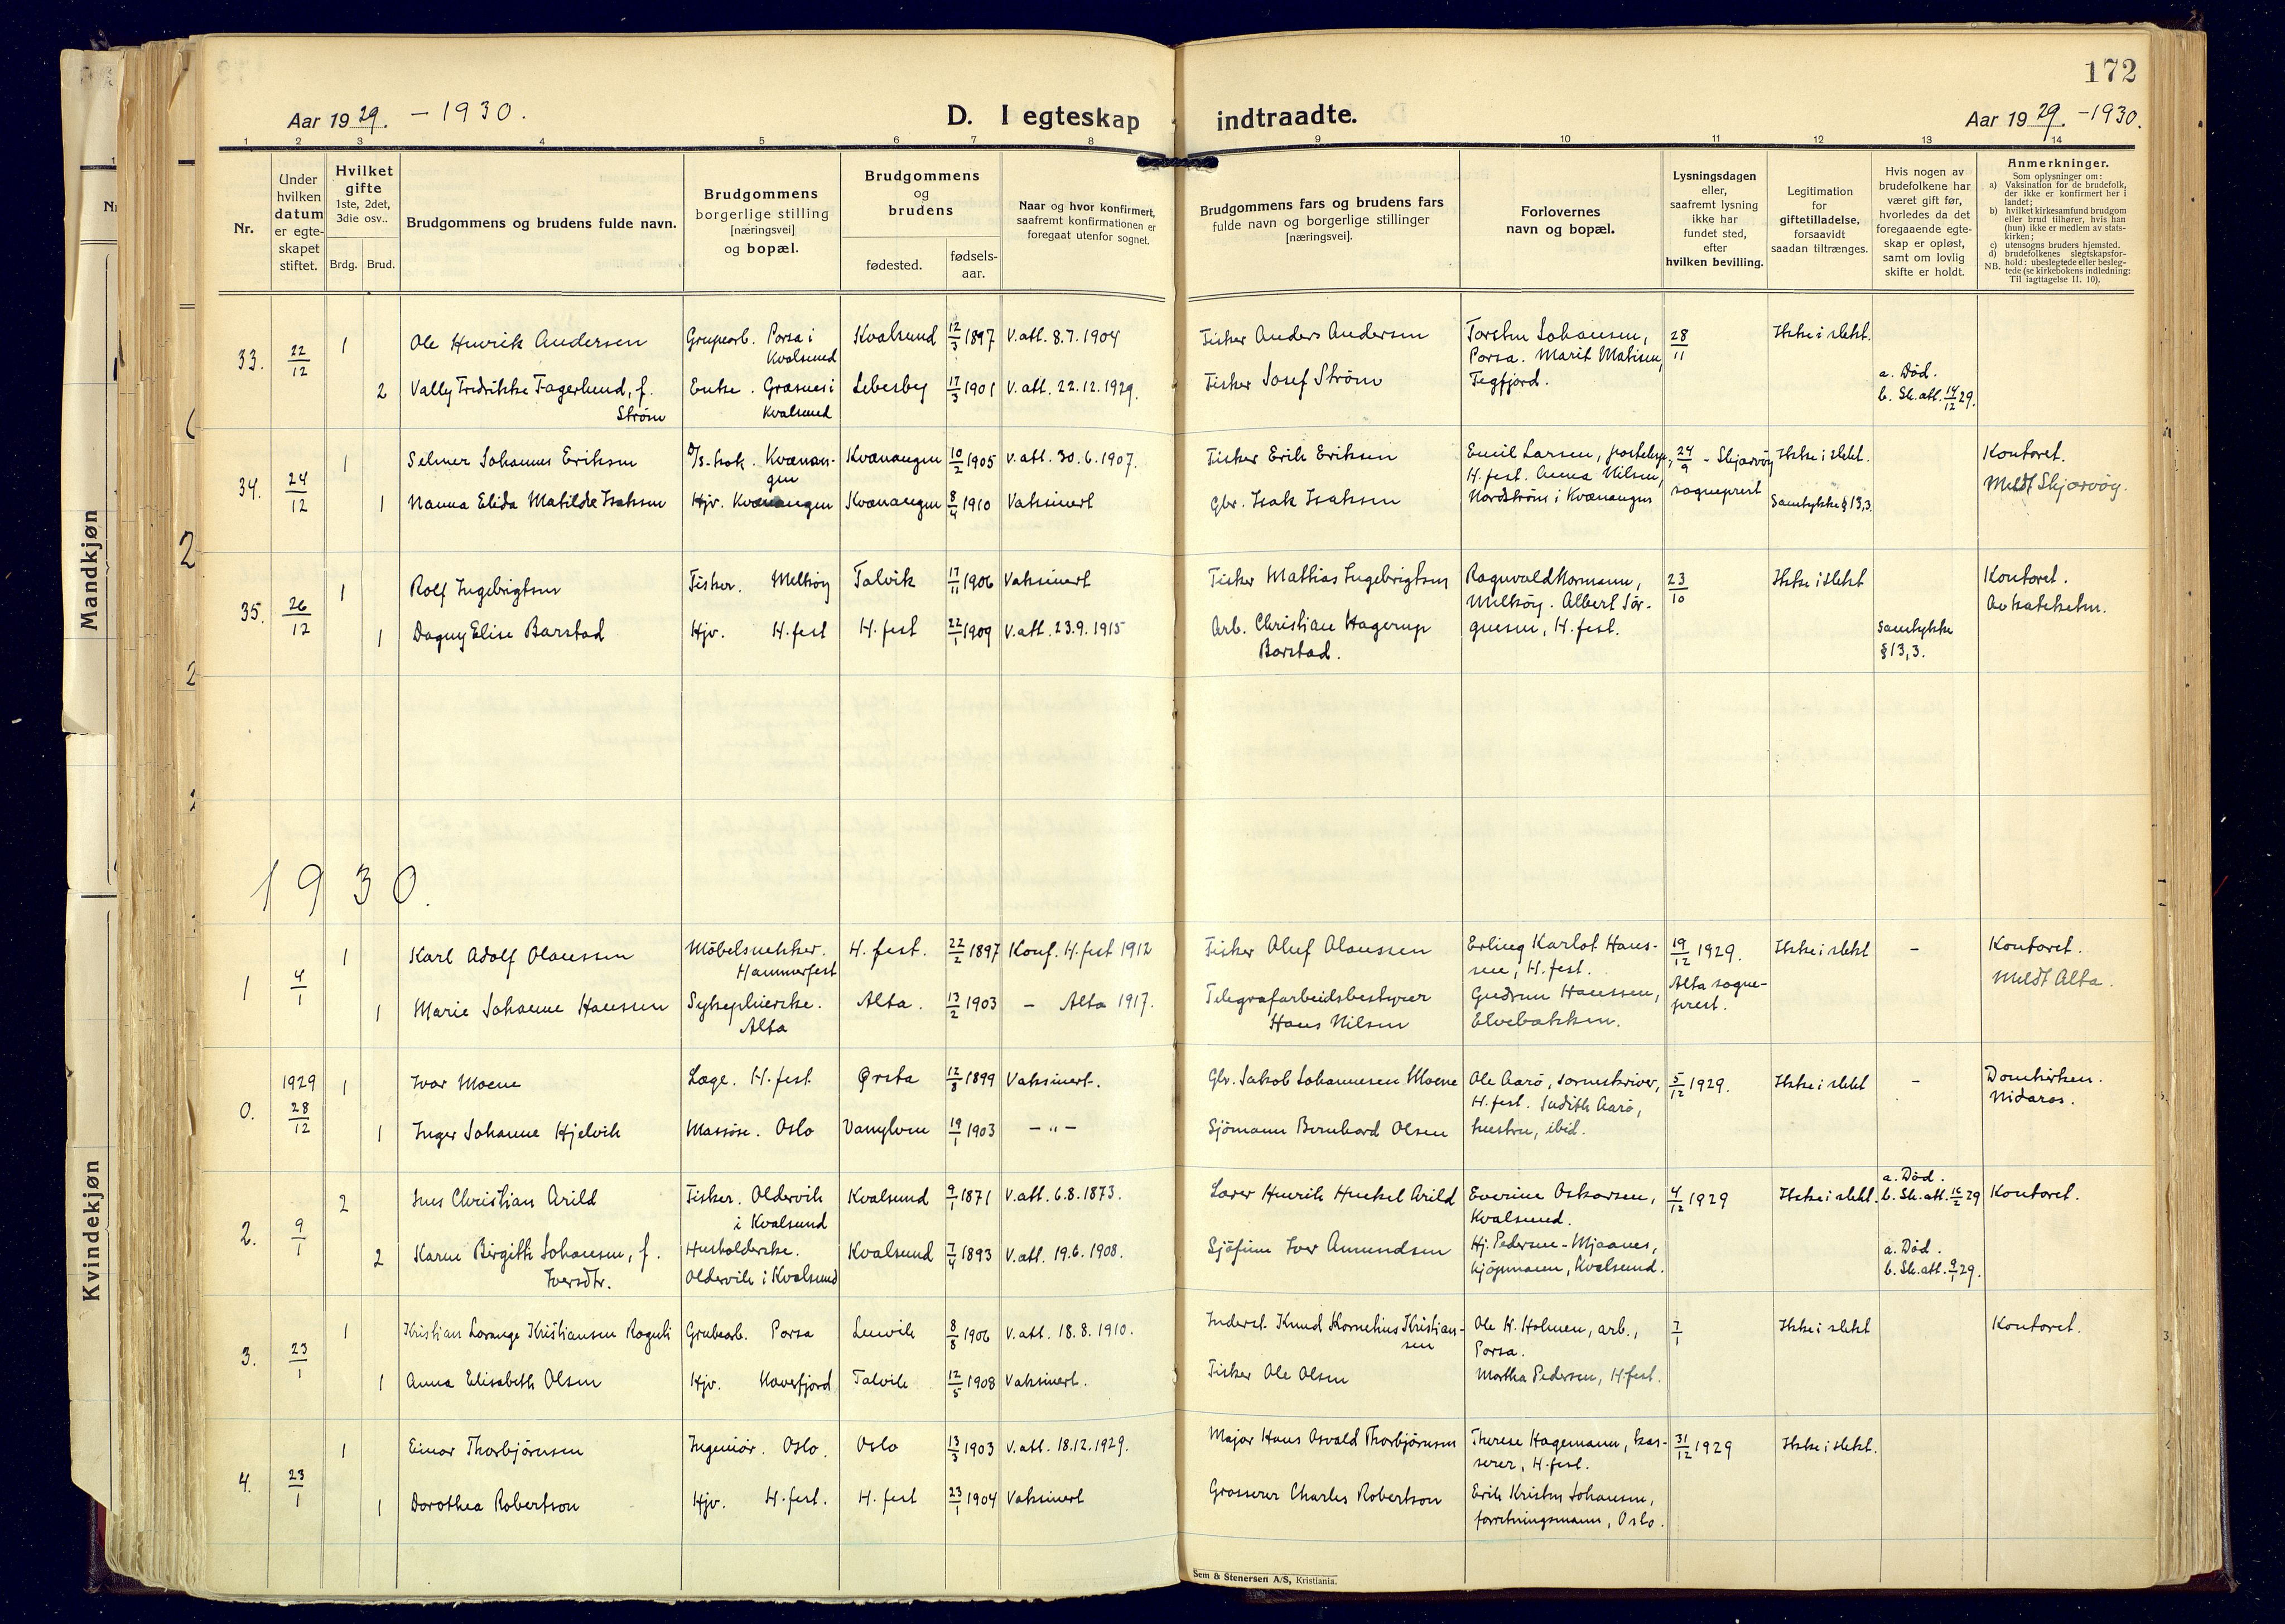 172
Aar 1929. – 1930.
D. I egteskap indtraadte.
Aar 1929. – 1930.
1 2 3 4 5 6 7 8 9 10 11 12 13 14
Nr.
Under hvilken datum er egteskapet stiftet.
Hvilket gifte 1ste, 2det, 3die osv..
Brdg. Brud.
Brudgommens og brudens fulde navn.
Brudgommens borgerlige stilling [næringsvei] og bopæl.
Brudgommens og brudens
fødested. fødsels-aar.
Naar og hvor konfirmert, saafremt konfirmationen er foregaat utenfor sognet.
Brudgommens fars og brudens fars fulde navn og borgerlige stillinger [næringsvei].
Forlovernes navn og bopæl.
Lysningsdagen eller, saafremt lysning ikke har fundet sted, efter hvilken bevilling.
Legitimation for giftetilladelse, forsaavidt saadan tiltrænges.
Hvis nogen av brudefolkene har været gift før, hvorledes da det foregaaende egteskap er opløst, samt om lovlig skifte er holdt.
Anmerkninger.
Som oplysninger om:
a) Vaksination for de brudefolk, der ikke er konfirmert her i landet;
b) hvilket kirkesamfund brudgom eller brud tilhører, hvis han (hun) ikke er medlem av statskirken;
c) utensogns bruders hjemsted.
d) brudefolkenes slegtskapsforhold: ubeslegtede eller beslegtede (se kirkebokens indledning: Til iagttagelse II. 10).
NB.
33. 22/12 1 Ole Henrik Andersen Grupearb. Porsa i Kvalsund Kvalsund 12/3 1897 V.att. 8.7.1904 Fisker Anders Andersen Torsten Johansen, Porsa. Marit Matisen, Tegfjord. 28/11 Ikke i slekt.
2 Vally Fredrikke Fagerlund, f. Strøm Enke. Græsnes i Kvalsund Lebesby 17/3 1901 V.att. 22.12.1929. Fisker Josef Strøm a. Død. b. Sk.att. 14/12 29.
34. 24/12 1 Selmer Johannes Eriksen D/s-kok. Kvænangen Kvænangen 10/2 1905 V.att. 30.6.1907. Fisker Erik Eriksen Emil Larsen, H.fest. Anna Nilsen, Nordstrøm i Kvænangen 24/9 – Skjærvøy sogneprest Ikke i slekt. Kontoret.
1 Nanna Elida Matilde Isaksen Hjv. Kvænangen Kvænangen 8/4 1910 Vaksinert Gbr. Isak Isaksen Samtykke § 13,3. Meldt Skjærvøy.
35. 26/12 1 Rolf Ingebrigtsen Fisker. Melkøy Talvik 17/11 1906 Vaksinert Fisker Mathias Ingebrigtsen Ragnvald Normann, Melkøy. Albert Jørgensen, H.fest. 23/10 Ikke i slekt Kontoret. Av kateketen.
1 Dagny Elise Barstad Hjv. H.fest H.fest 22/1 1909 V.att. 23.9.1915 Arb. Christian Hagerup Barstad. Samtykke § 13,3.
1930.
1 4/1 1 Karl Adolf Olaussen Møbelsnekker. Hammerfest H.fest. 22/2 1897 Konf. H.fest 1912 Fisker Oluf Olaussen Erling Karlot Hanssen, H.fest. 19/12 1929. Ikke i slekt – Kontoret.
1 Marie Johanne Hanssen Sykepleierske. Alta Alta. 13/2 1903 – Alta 1917. Telegrafarbeidsbestyrer Hans Nilsen Gudrun Hanssen, Elvebakken. Alta sogneprest. Meldt Alta.
0. 1929 28/12 1 Ivar Moene Læge. H.fest Ørsta 12/8 1899 Vaksinert. Gbr. Jakob Johannesen Moene Ole Aarø, sorenskriver, H.fest. Judith Aarø, hustru, ibid. 5/12 1929. Ikke i slekt – Domkirken. Nidaros.
1 Inger Johanne Hjelvik Massøse. Oslo Vanylven 19/1 1903 – " – Sjømann Bernhard Olsen
2. 9/1 2 Jens Christian Arild Fisker. Oldervik i Kvalsund Kvalsund 9/1 1871 V.att. 6.8.1873. Lærer Henrik Henkel Arild Everine Oskarsen, Kvalsund. 4/12 1929 Ikke i slekt. a. Død. b. Sk.att. 16/2 29 Kontoret.
2 Karen Birgitte Johansen, f. Iversdtr. Husholderske. Oldervik i Kvalsund Kvalsund 7/4 1893 V.att. 19.6.1908. Sjøfinn Iver Amundsen Hj. Pedersen-Mjaanes, kjøpmann, Kvalsund. a. Død. b. Sk.att. 9/1 29.
3. 23/1 1 Kristian Lorange Kristiansen Rognli Grubearb. Porsa Lenvik 8/8 1906 V.att. 18.8.1910. Inderst. Knud Kornelius Kristiansen Ole K. Holmen, arb., Porsa. 7/1 Ikke i slekt Kontoret.
1 Anna Elisabeth Olsen Hjv. Kaavfjord Talvik 12/5 1908 Vaksinert. Fisker Ole Olsen Martha Pedersen, H.fest.
4. 23/1 1 Einar Thorbjørnsen Ingeniør. Oslo. Oslo 13/3 1903 V.att. 18.12.1929. Major Hans Osvald Thorbjørnsen Therese Hagemann, kasserer, H.fest. 31/12 1929 Ikke i slekt.
1 Dorothea Robertson Hjv. H.fest. H.fest 23/1 1904 Vaksinert Grosserer Charles Robertson Erik Kristen Johansen, forretningsmann, Oslo.
Sem & Stenersen A/S, Kristiania.
Mandkjøn
Kvindekjøn